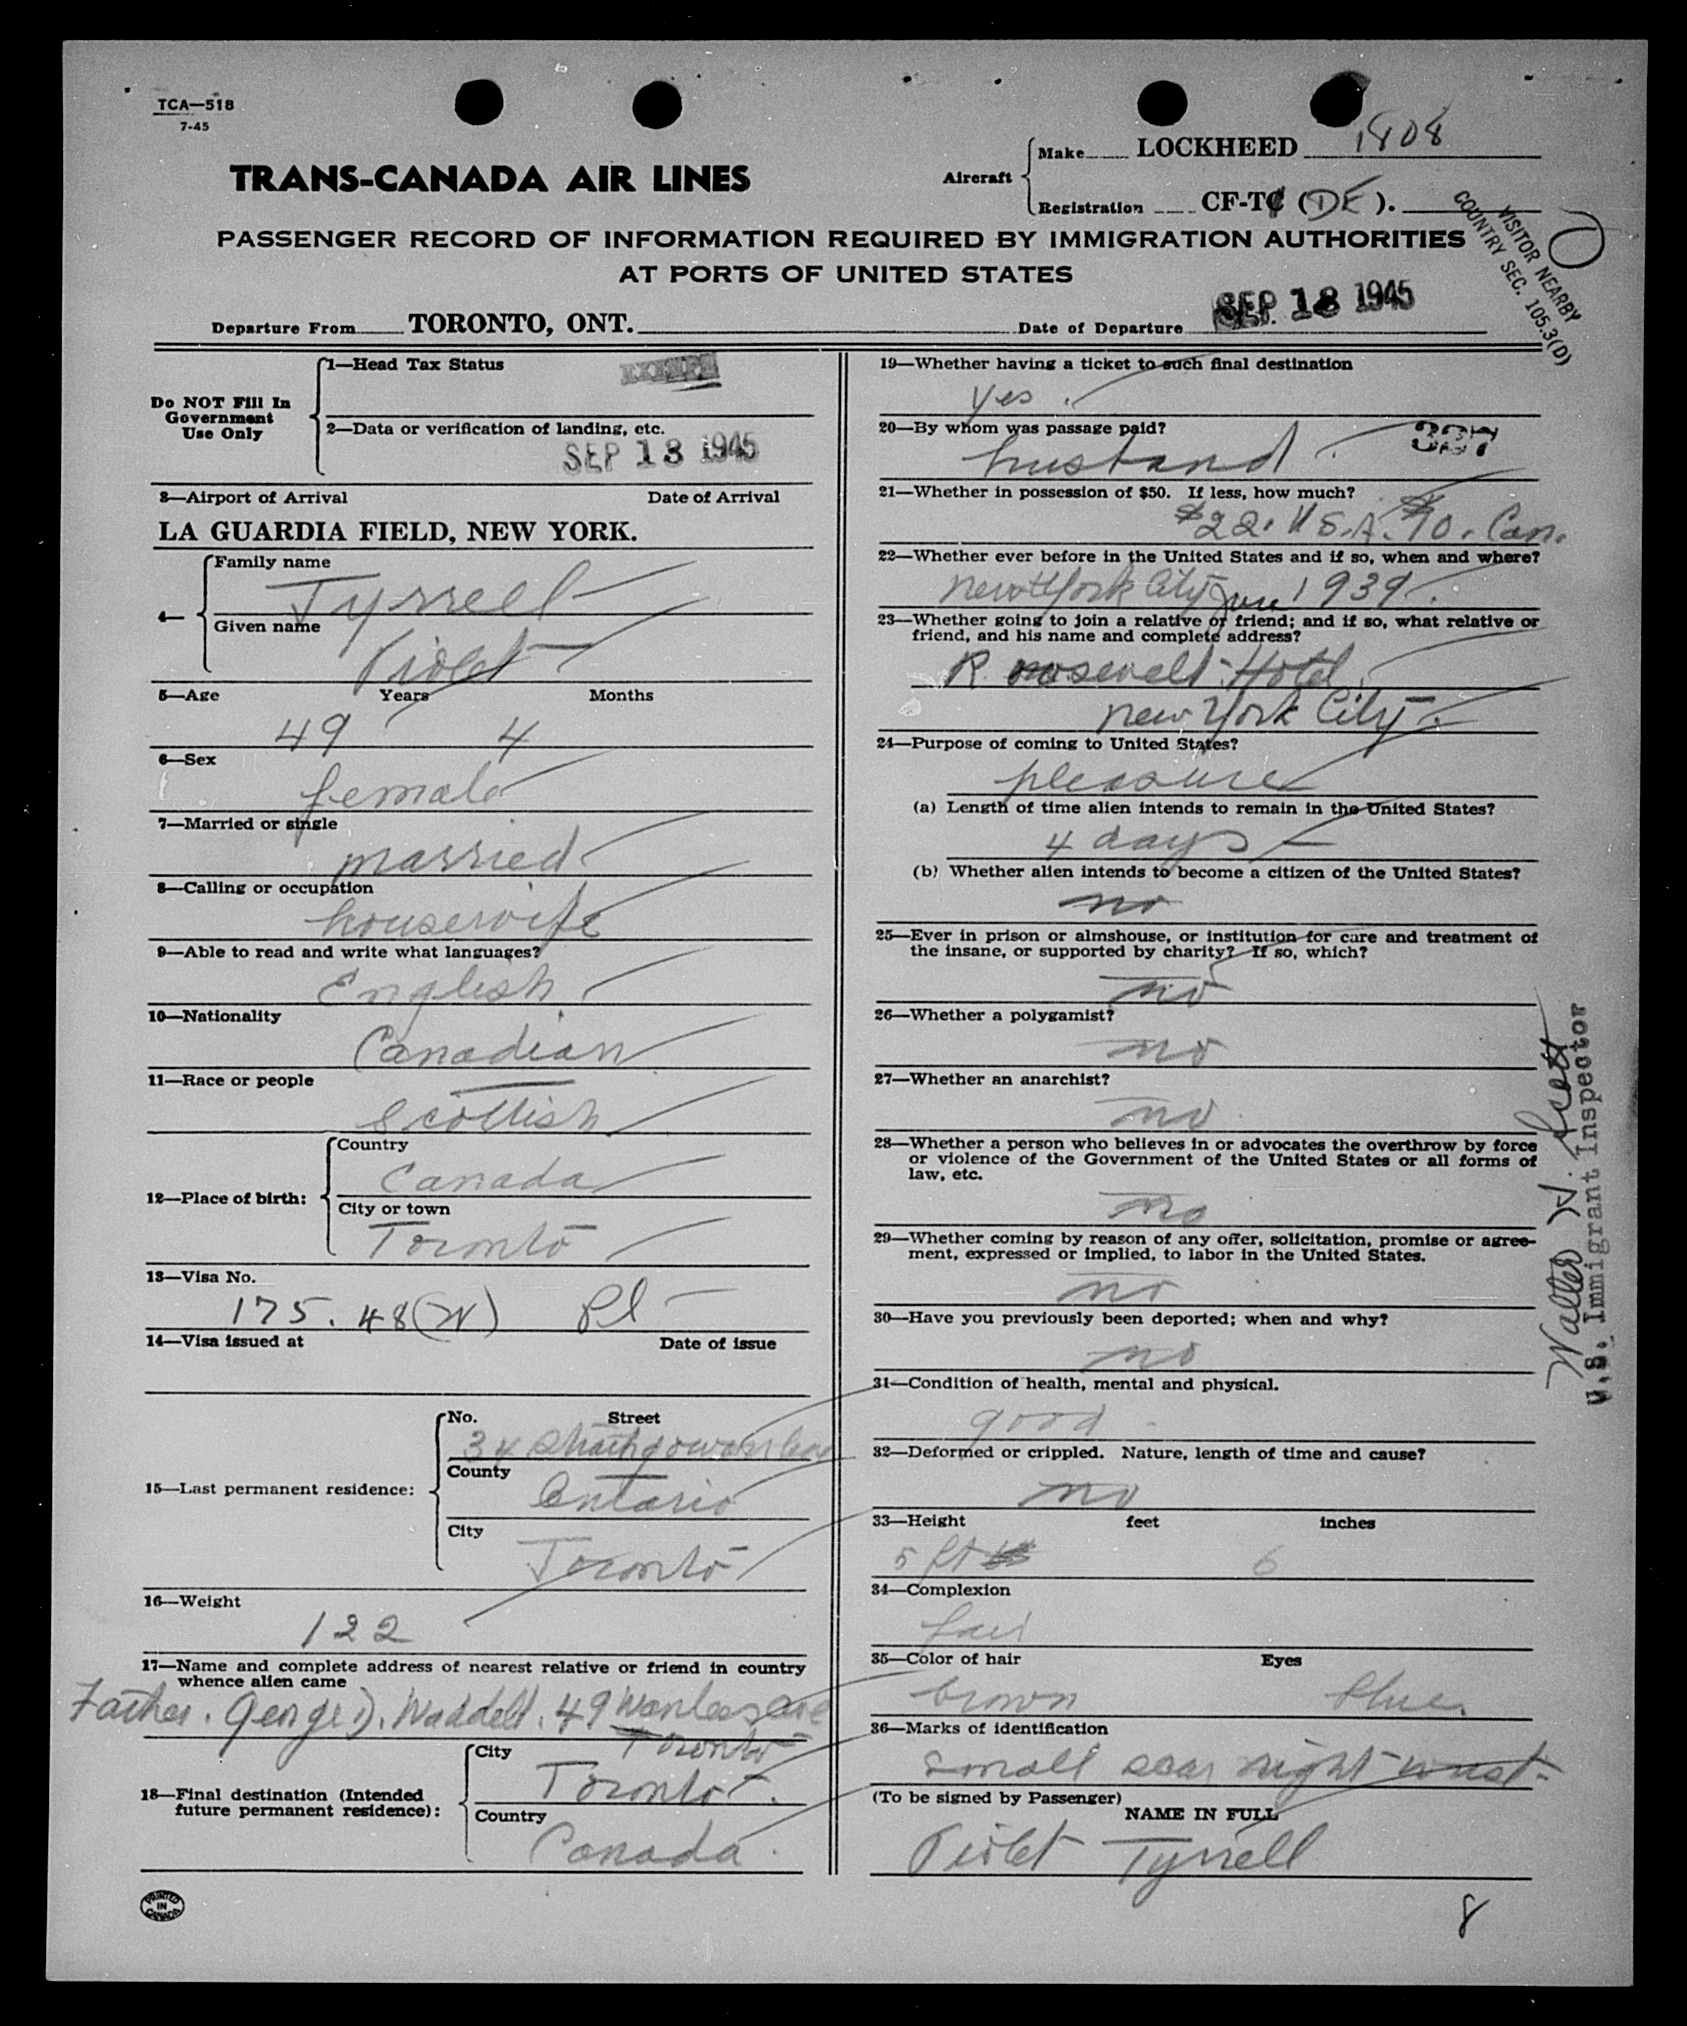 TCA—518
7-45
TRANS-CANADA AIR LINES
Aircraft
Make LOCKHEED 1808
Registration CF-TC (DE).
PASSENGER RECORD OF INFORMATION REQUIRED BY IMMIGRATION AUTHORITIES
AT PORTS OF UNITED STATES
VISITOR NEARBY
COUNTRY SEC. 105.3(D)
Departure From TORONTO, ONT. Date of Departure SEP 18 1945
Do NOT Fill In
Government
Use Only
1—Head Tax Status EXEMPT
2—Data or verification of landing, etc.
SEP 18 1945
3—Airport of Arrival Date of Arrival
LA GUARDIA FIELD, NEW YORK.
4—
Family name
Tyrrell
Given name
Violet
5—Age Years Months
49 4
6—Sex
female
7—Married or single
married
8—Calling or occupation
housewife
9—Able to read and write what languages?
English
10—Nationality
Canadian
11—Race or people
Scottish
12—Place of birth:
Country
Canada
City or town
Toronto
13—Visa No.
175.48(W) Pl
14—Visa issued at Date of issue
15—Last permanent residence:
No. Street
34 Strathgowan
County
Ontario
City
Toronto
16—Weight
122
17—Name and complete address of nearest relative or friend in country
whence alien came
Father. George D. Waddell. 49 Wanless Ave
Toronto
18—Final destination (Intended
future permanent residence):
City
Toronto.
Country
Canada.
PRINTED
IN
CANADA
19—Whether having a ticket to such final destination
yes.
20—By whom was passage paid?
husband. 327
21—Whether in possession of $50. If less, how much?
$22. U.S.A. $10. Can.
22—Whether ever before in the United States and if so, when and where?
New York City June 1939.
23—Whether going to join a relative or friend; and if so, what relative or
friend, and his name and complete address?
Hotel
New York City.
24—Purpose of coming to United States?
pleasure
(a) Length of time alien intends to remain in the United States?
4 days
(b) Whether alien intends to become a citizen of the United States?
no
25—Ever in prison or almshouse, or institution for care and treatment of
the insane, or supported by charity? If so, which?
no
26—Whether a polygamist?
no
27—Whether an anarchist?
no
28—Whether a person who believes in or advocates the overthrow by force
or violence of the Government of the United States or all forms of
law, etc.
no
29—Whether coming by reason of any offer, solicitation, promise or agree-
ment, expressed or implied, to labor in the United States.
no
30—Have you previously been deported; when and why?
no
31—Condition of health, mental and physical.
good
32—Deformed or crippled. Nature, length of time and cause?
no
33—Height feet inches
5 ft 6
34—Complexion
fair
35—Color of hair Eyes
brown blue.
36—Marks of identification
small scar right wrist.
(To be signed by Passenger)
NAME IN FULL
Violet Tyrrell
8
Walter J. Scott
U.S. Immigrant Inspector